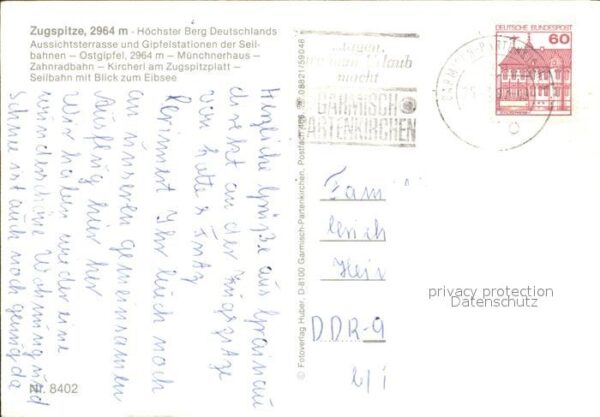 Zugspitze, 2964 m - Höchster Berg Deutschlands
Aussichtsterrasse und Gipfelstationen der Seil-
bahnen – Ostgipfel, 2964 m – Münchnerhaus –
Zahnradbahn – Kircherl am Zugspitzplatt –
Seilbahn mit Blick zum Eibsee
Herzliche Grüße aus Grainau
direkt an der Zugspitze
von Lotte & Fritz
Erinnert Ihr Euch noch
an unseren gemeinsamen
Ausflug hier her
Wir haben wieder eine
wunderschöne Wohnung und
Schnee ist auch noch genug da
Nr. 8402
© Fotoverlag Huber, D-8100 Garmisch-Partenkirchen, Postfach 466 08821/59048
Urlaub
macht
GARMISCH
PARTENKIRCHEN
GARMISCH-PARTENKIRCHEN
DEUTSCHE BUNDESPOST
60
Fami
Heri
DDR-9
privacy protection
Datenschutz